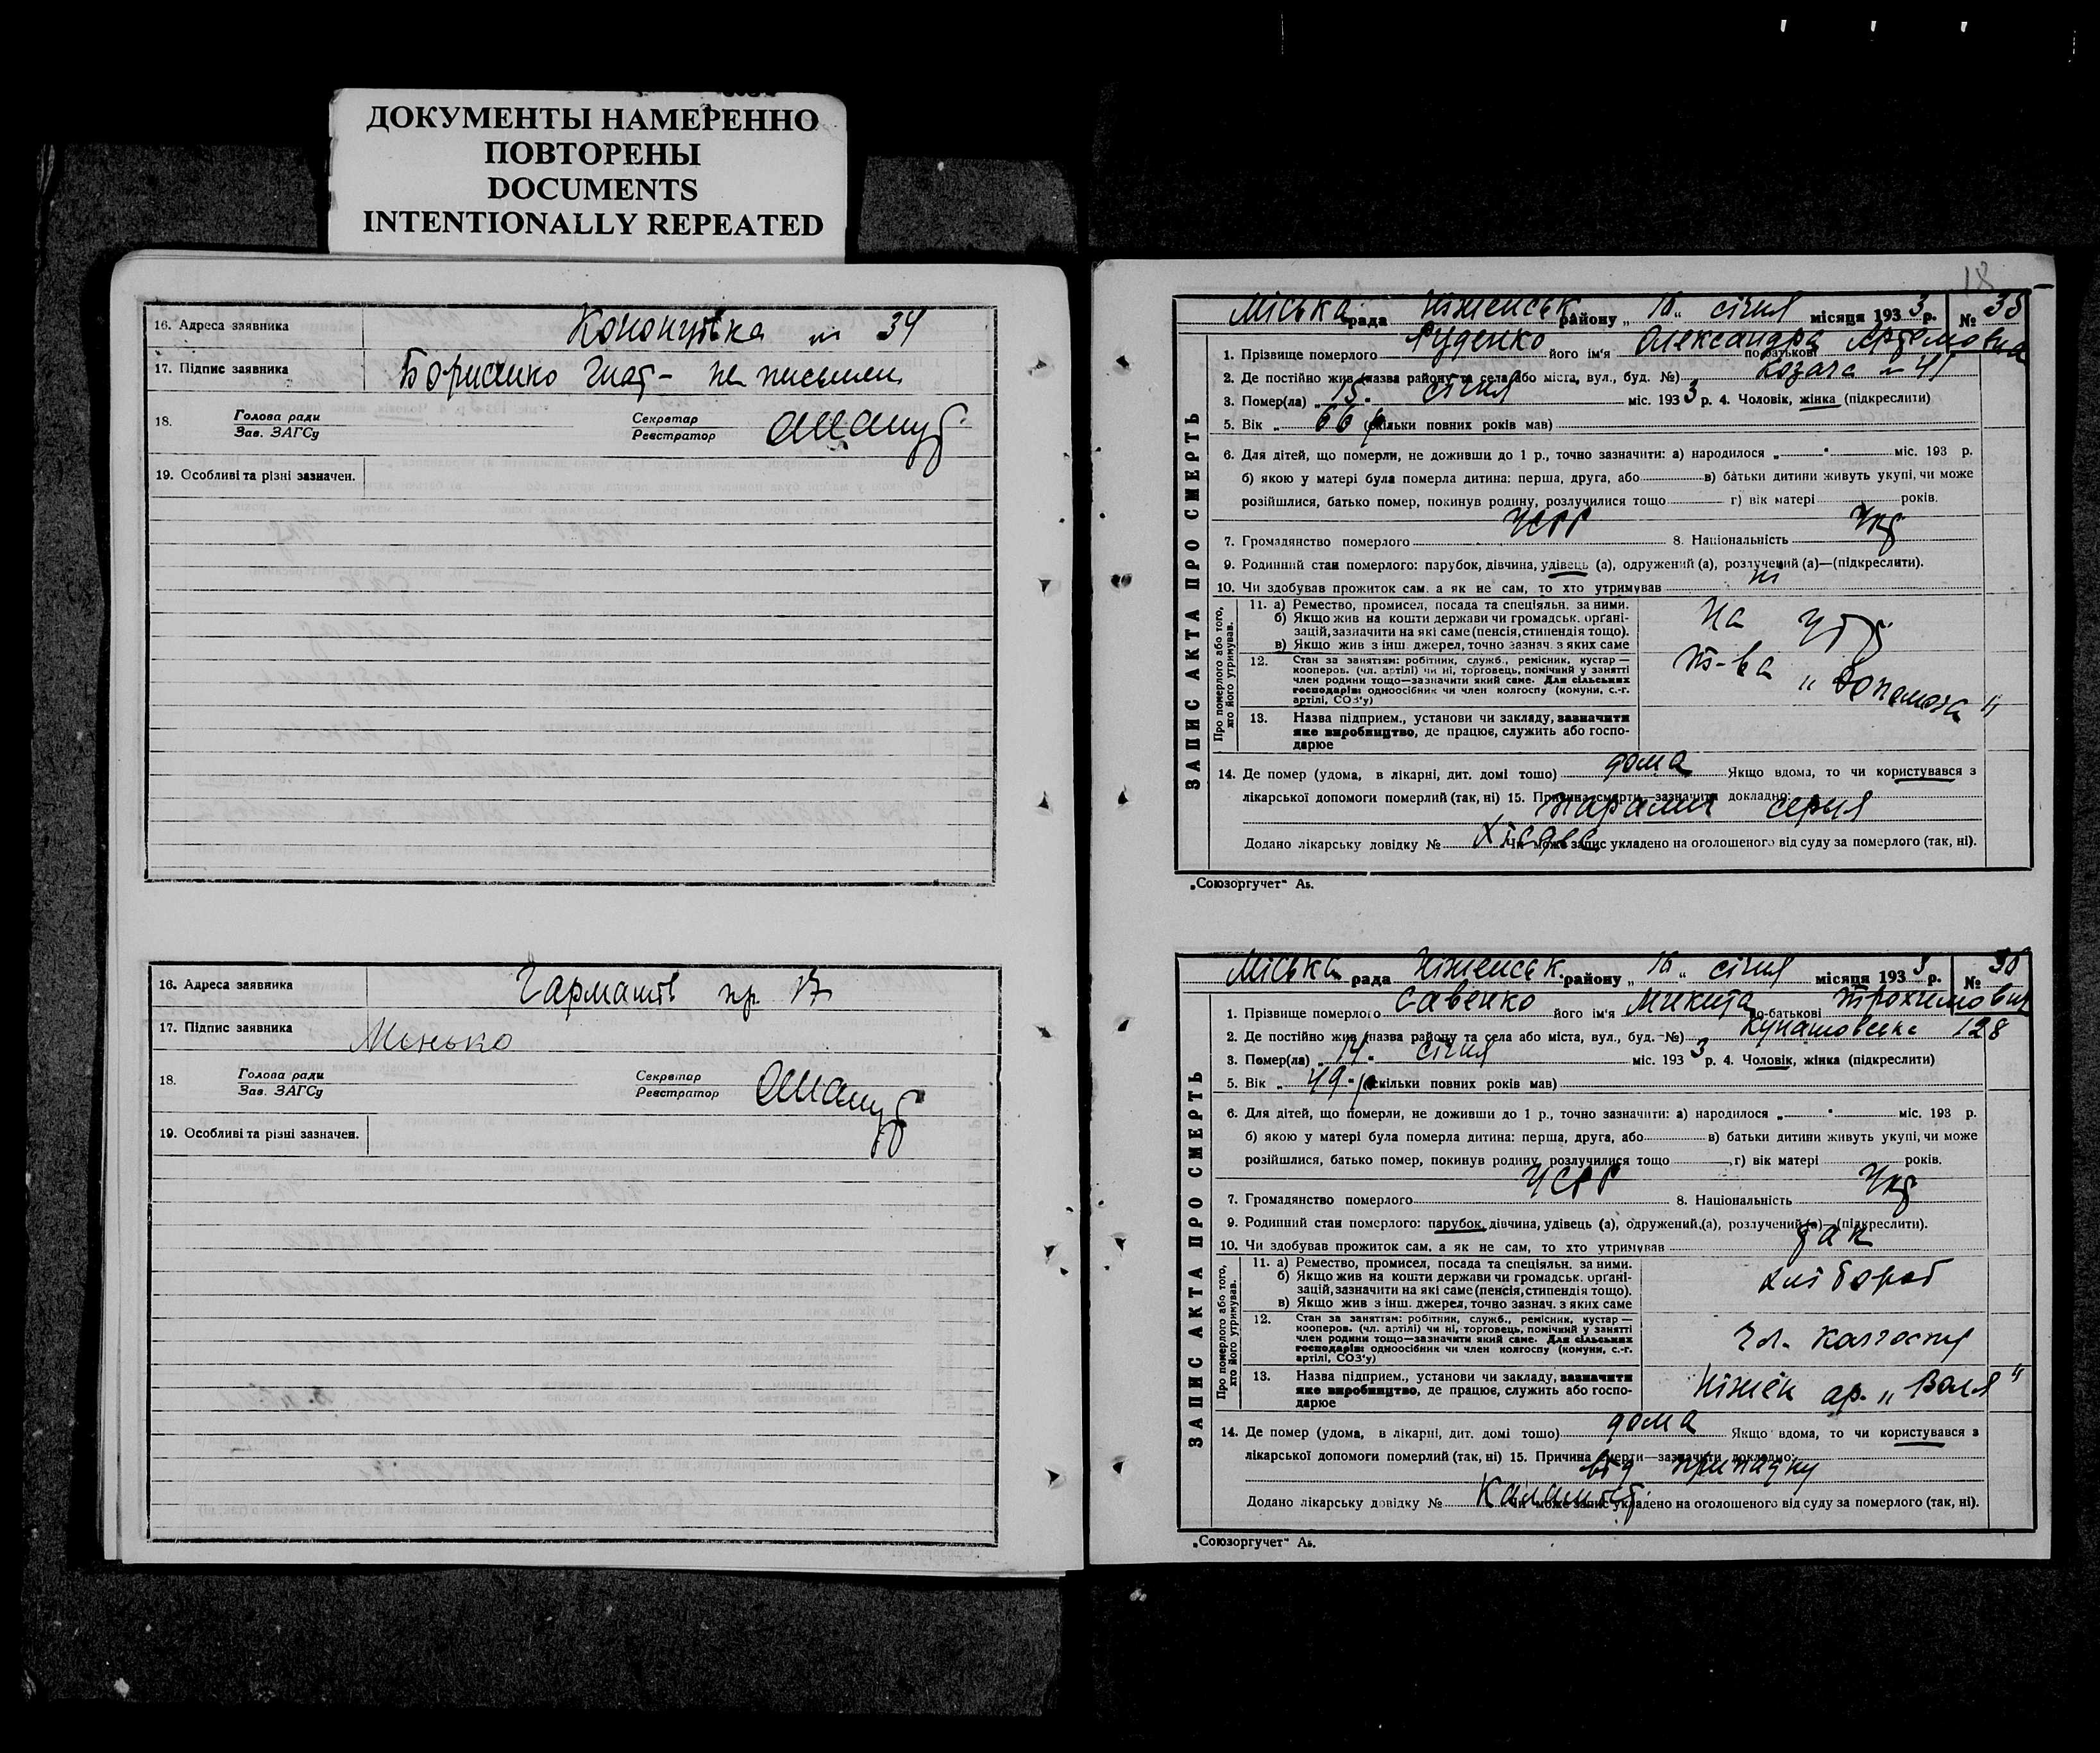 ДОКУМЕНТЫ НАМЕРЕННО
ПОВТОРЕНЫ
DOCUMENTS
INTENTIONALLY REPEATED
16. Адреса заявника
34
17. Підпис заявника
Гнат - не письмен
18. Голова ради Секретар
Зав. ЗАГСу Реєстратор
19. Особливі та різні зазначен.
16. Адреса заявника
пр. 17
17. Підпис заявника
Менько
18. Голова ради Секретар
Зав. ЗАГСу Реєстратор
19. Особливі та різні зазначен.
18
ЗАПИС АКТА ПРО СМЕРТЬ
Міська рада Ніженськ району „16“ січня місяця 1933 р. № 35
1. Прізвище померлого Руденко його ім'я Олександра по батькові Артемовна
2. Де постійно жив (назва району та села або міста, вул., буд. №) Козача № 41
3. Помер(ла) „15“ січня міс. 1933 р. 4. Чоловік, жінка (підкреслити)
5. Вік „ 66 р (скільки повних років мав)
6. Для дітей, що померли, не доживши до 1 р., точно зазначити: а) народилося „ “ міс. 193 р.
б) якою у матері була померла дитина: перша, друга, або в) батьки дитини живуть укупі, чи може
розійшлися, батько помер, покинув родину, розлучилися тощо г) вік матері років.
7. Громадянство померлого УСРР 8. Національність Укр
9. Родинний стан померлого: парубок, дівчина, удівець (а), одружений (а), розлучений (а)—(підкреслити).
10. Чи здобував прожиток сам, а як не сам, то хто утримував ні
Про померлого або того, хто його утримував.
11. а) Ремество, промисел, посада та спеціяльн. за ними.
б) Якщо жив на кошти держави чи громадськ. органі-
зацій, зазначити на які саме (пенсія, стипендія тощо).
в) Якщо жив з інш. джерел, точно зазнач. з яких саме
На утр
12. Стан за заняттям: робітник, служб., ремісник, кустар —
кооперов. (чл. артілі) чи ні, торговець, помічний у занятті
член родини тощо—зазначити який саме. Для сільських
господарів: одноосібник чи член колгоспу (комуни, с.-г.
артілі, СОЗ'у)
т-ва „Допомога“
13. Назва підприєм., установи чи закладу, зазначити
яке виробництво, де працює, служить або госпо-
дарює
14. Де помер (удома, в лікарні, дит. домі тощо) дома Якщо вдома, то чи користувався з
лікарської допомоги померлий (так, ні) 15. Причина смерти—зазначити докладно:
параліч серця
Додано лікарську довідку № Чи може запис укладено на оголошеного від суду за померлого (так, ні).
„Союзоргучет“ А₅.
ЗАПИС АКТА ПРО СМЕРТЬ
Міська рада Ніженськ. району „16“ січня місяця 1933 р. № 36
1. Прізвище померлого Савенко його ім'я Микита по-батькові Трохимович
2. Де постійно жив (назва району та села або міста, вул., буд. №) Кунашовська 128
3. Помер(ла) „14“ січня міс. 1933 р. 4. Чоловік, жінка (підкреслити)
5. Вік „ 49 р (скільки повних років мав)
6. Для дітей, що померли, не доживши до 1 р., точно зазначити: а) народилося „ “ міс. 193 р.
б) якою у матері була померла дитина: перша, друга, або в) батьки дитини живуть укупі, чи може
розійшлися, батько помер, покинув родину, розлучилися тощо г) вік матері років.
7. Громадянство померлого УСРР 8. Національність Укр
9. Родинний стан померлого: парубок, дівчина, удівець (а), одружений (а), розлучений (а)—(підкреслити).
10. Чи здобував прожиток сам, а як не сам, то хто утримував так
Про померлого або того, хто його утримував.
11. а) Ремество, промисел, посада та спеціяльн. за ними.
б) Якщо жив на кошти держави чи громадськ. органі-
зацій, зазначити на які саме (пенсія, стипендія тощо).
в) Якщо жив з інш. джерел, точно зазнач. з яких саме
хлібороб
12. Стан за заняттям: робітник, служб., ремісник, кустар —
кооперов. (чл. артілі) чи ні, торговець, помічний у занятті
член родини тощо—зазначити який саме. Для сільських
господарів: одноосібник чи член колгоспу (комуни, с.-г.
артілі, СОЗ'у)
чл. колгоспу
13. Назва підприєм., установи чи закладу, зазначити
яке виробництво, де працює, служить або госпо-
дарює
Ніжен ар. „Воля“
14. Де помер (удома, в лікарні, дит. домі тощо) дома Якщо вдома, то чи користувався з
лікарської допомоги померлий (так, ні) 15. Причина смерти—зазначити докладно:
від припадку
Додано лікарську довідку № Чи може запис укладено на оголошеного від суду за померлого (так, ні).
„Союзоргучет“ А₅.